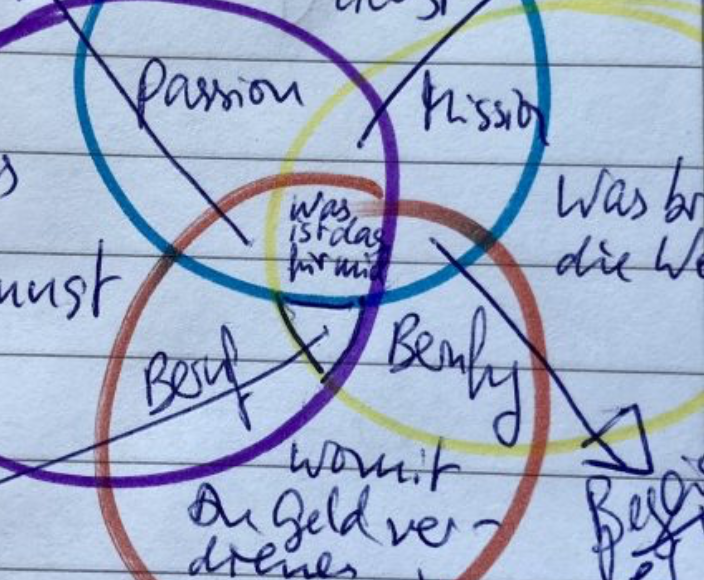 Passion
Mission
was
ist das
für mich
Was br
die We
nnst
Beruf
Berufg
womit
Du Geld ver-
dienes